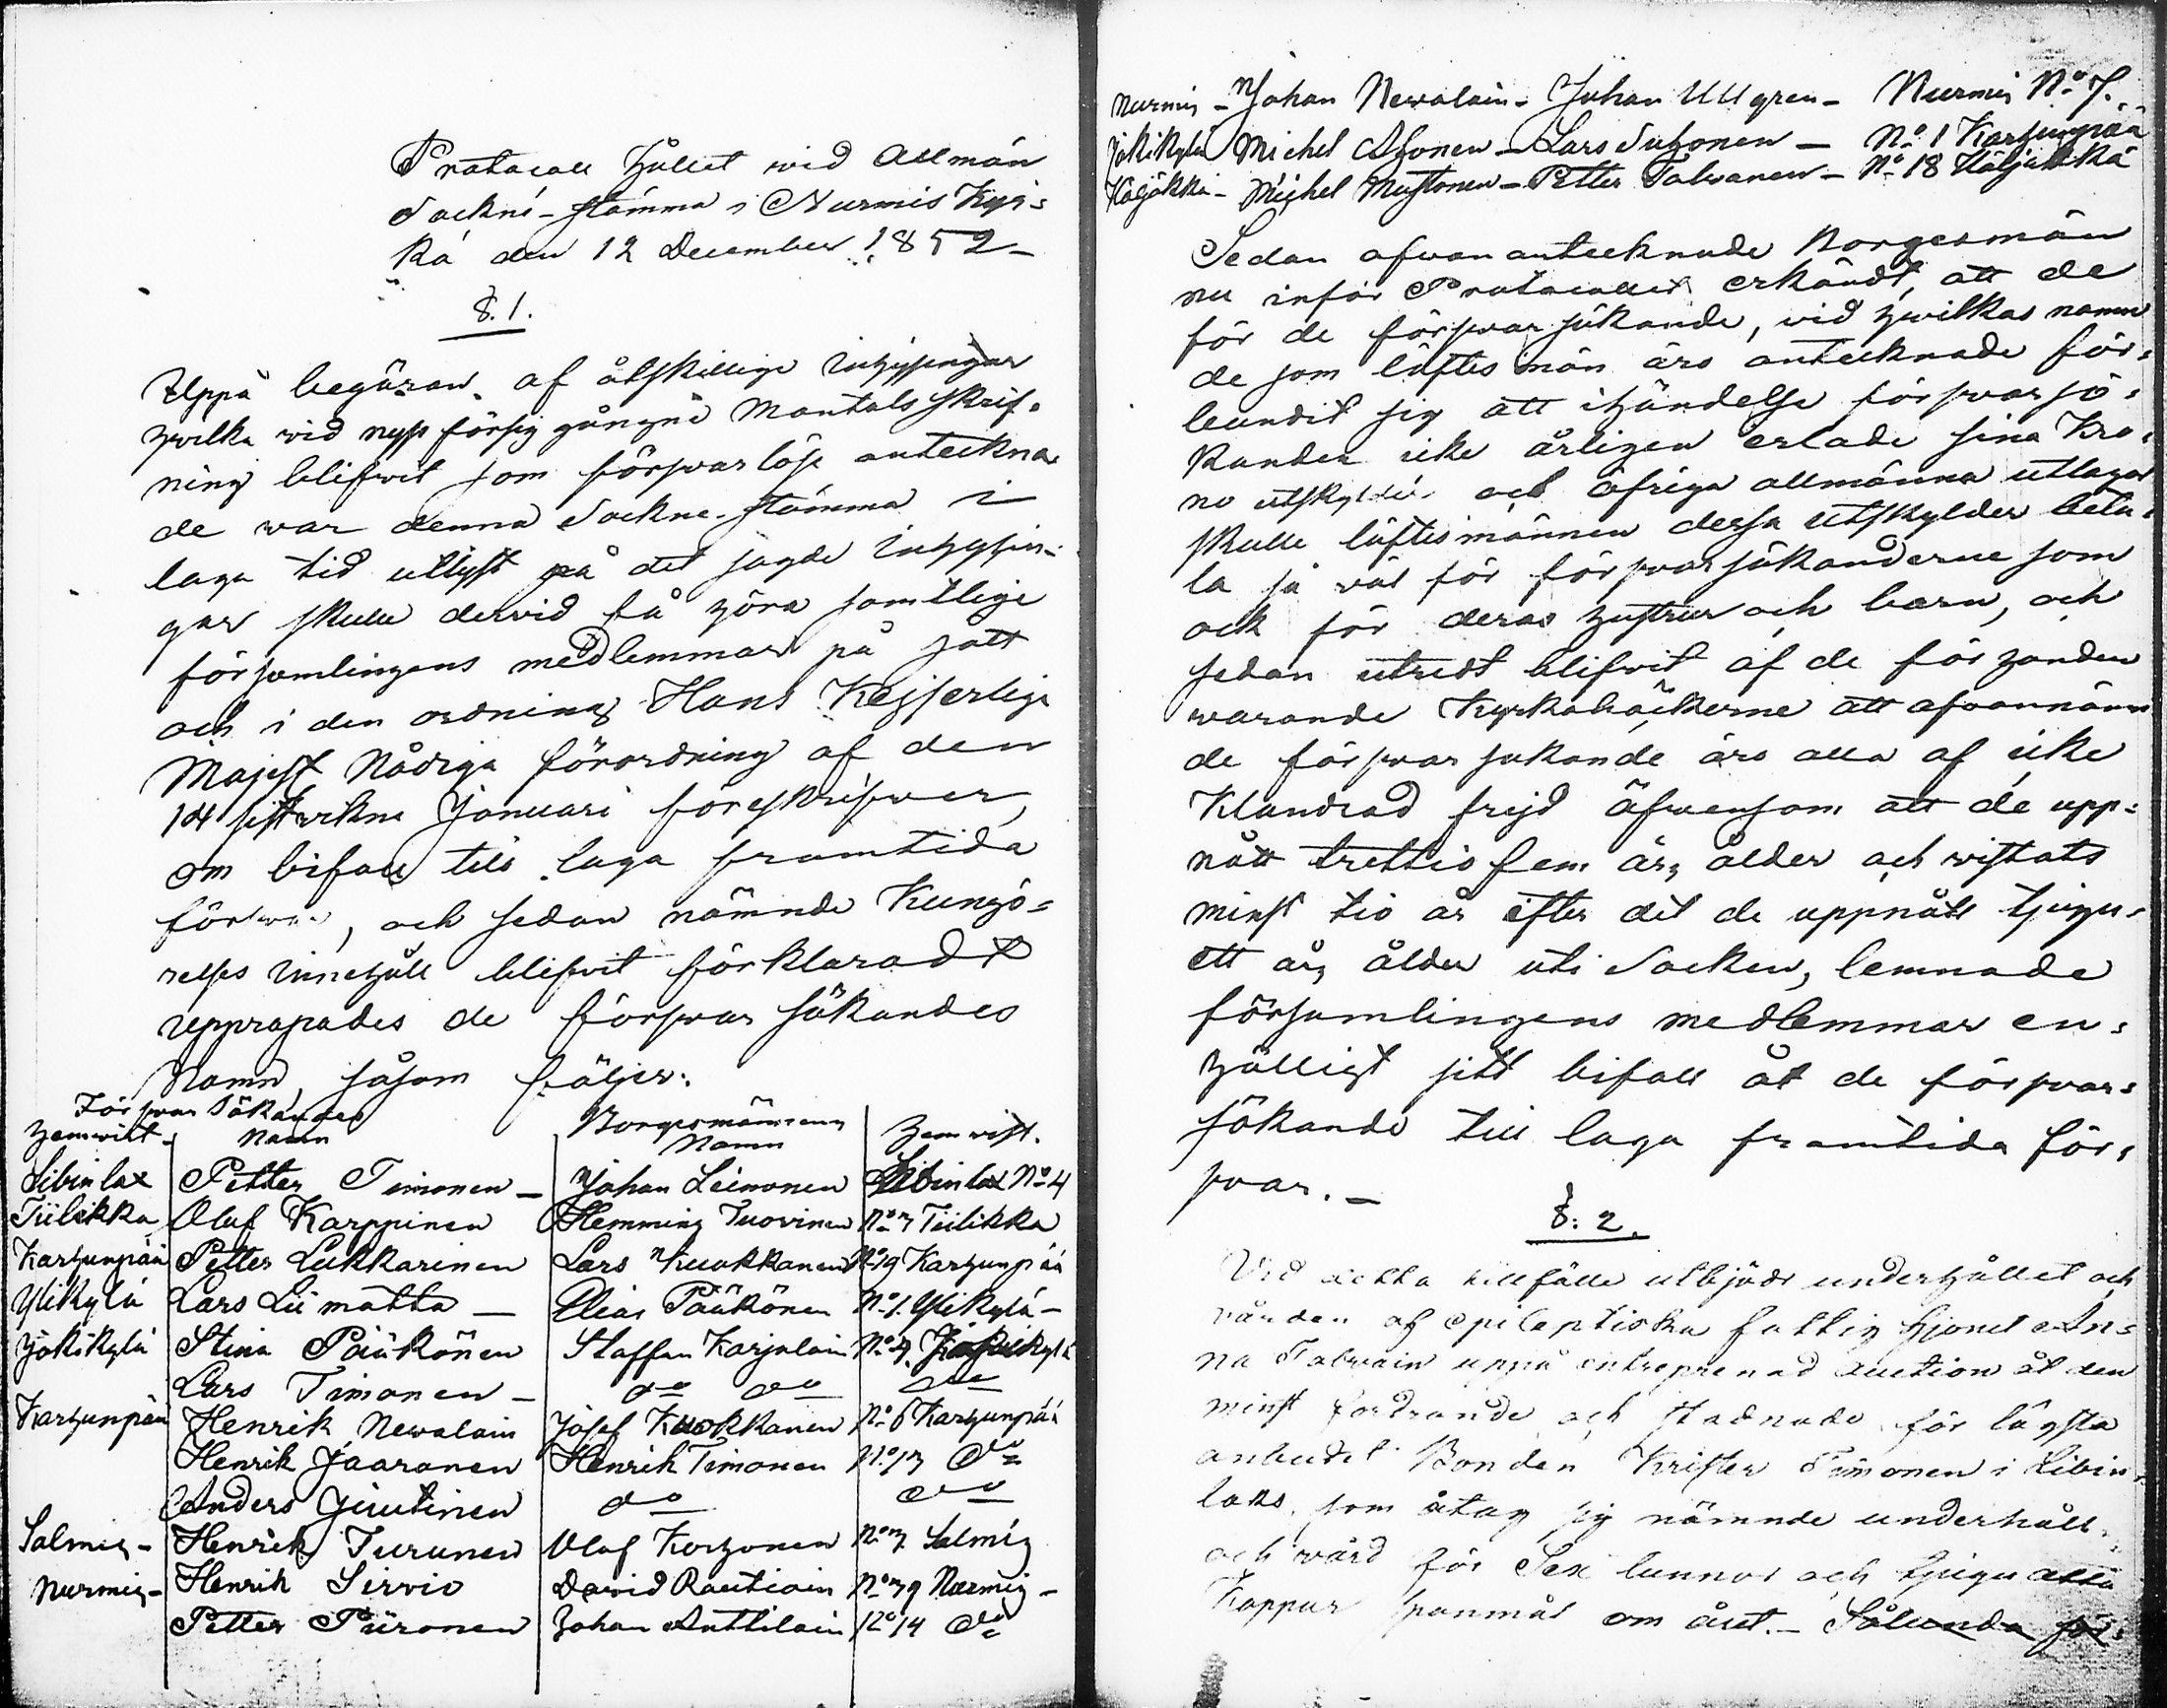 Protocoll hållet wid Allmän
Sockne-stämma i Nurmis Kyr-
ka den 12 December 1852-
§. 1.
Uppå begäran af åtskillige inhysingar
hwilka wid nyss försig gångne Mantals skrif-
ning blifwit som försvarlöse anteckna
de war denna Sockne-stämma i
laga tid utlyst på det sagde inhysin-
gar skulle derwid få höra samtlige
församlingens medlemmar på satt
och i den ordning Hans Kejserlige
Majest Nådiga förordning af den
14 sistwikne Januari föreskrifwer,
om bifall till laga framtida
förswar, och sedan nämnde Kungö-
relses innehåll blifvit förklaradt
uppropades de försvar sökandes
Namn, såsom följer:
Försvar Sökandes Borgesmännens
hemwist- Namn Namn hemwist.
Libinlax Petter Timonen - Johan Leinonen Libinlax No 4
Tiilikka Oluf Karppinen Hemming Tuovinen No 7 Tiilikka
Karhunpää Petter Lukkarinen Lars Kuokkanen No 19 Karhunpää
Ylikylä Lars Liimatta - Elias Pääkönen No 1. Ylikylä-
Jokikylä Stina Pääkönen Staffan Karjalain No 7. Jokikylä
Lars Timonen - do do do
Karhunpää Henrik Newalain Josef Kuokkanen No 6 Karhunpää
Henrik Jaaranen Henrik Timonen No 13 do
Anders Jeutinen do do
Salmis- Henrik Turunen Olof Korhonen No 7 Salmis
Nurmis- Henrik Sirvio David Rautiain No 39 Nurmis-
Petter Piironen Johan Anttilain No 14 do
Nurmis - Johan Newalain - Johan Ullgren - Nurmis No 7.
Jokikylä Michel Ahonen - Lars Suhonen - No 1 Karhunpää
Höljäkkä - Michel Mustonen - Petter Talwanen - No 18 Höljäkkä
Sedan ofwanantecknade Borgesmän
nu inför Protocollet erkändt, att de
för de försvarsökande, wid hwilkas namn
de som löftesmän äro antecknade för-
bundit sig att ihändelse försvarsö-
kanden icke årligen erlade sina Kro-
no utskylder och öfriga allmänna utlagor
skulle löftesmännen dessa utskylder beta-
la så wäl för försvarsökanderne som
ock för deras hustrur och barn, och
sedan utredt blifvit af de för handen
warande Kyrkoböckerne att ofvannämn
de försvarsökande äro alla af icke
Klandrad frejd äfwensom att de upp-
nått trettiofem års ålder och wistats
minst tio år efter det de uppnått tjugu-
ett års ålder uti Socken, lemnade
församlingens medlemmar en-
hälligt sitt bifall åt de försvar-
sökande till laga framtida för-
svar. -
§: 2.
Vid detta tillfälle utbjöds underhållet och
vården af epileptiska fattig hjonet An-
na Talwain uppå entreprenad auction åt den
minst fordrande och stadnade för lägsta
anbudet Bonden Krister Timonen i Libin-
laks, som åtag sig nämnde underhåll
och wård för Sex tunnor och tjugu åtta
Kappar spanmål om året. - Sålunda för-